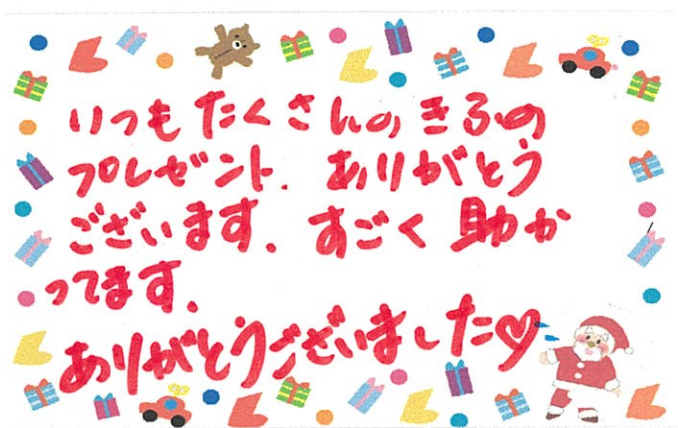 いつもたくさんのきふの
プレゼント、ありがとう
ございます、すごく助か
ってます、
ありがとうございました♡